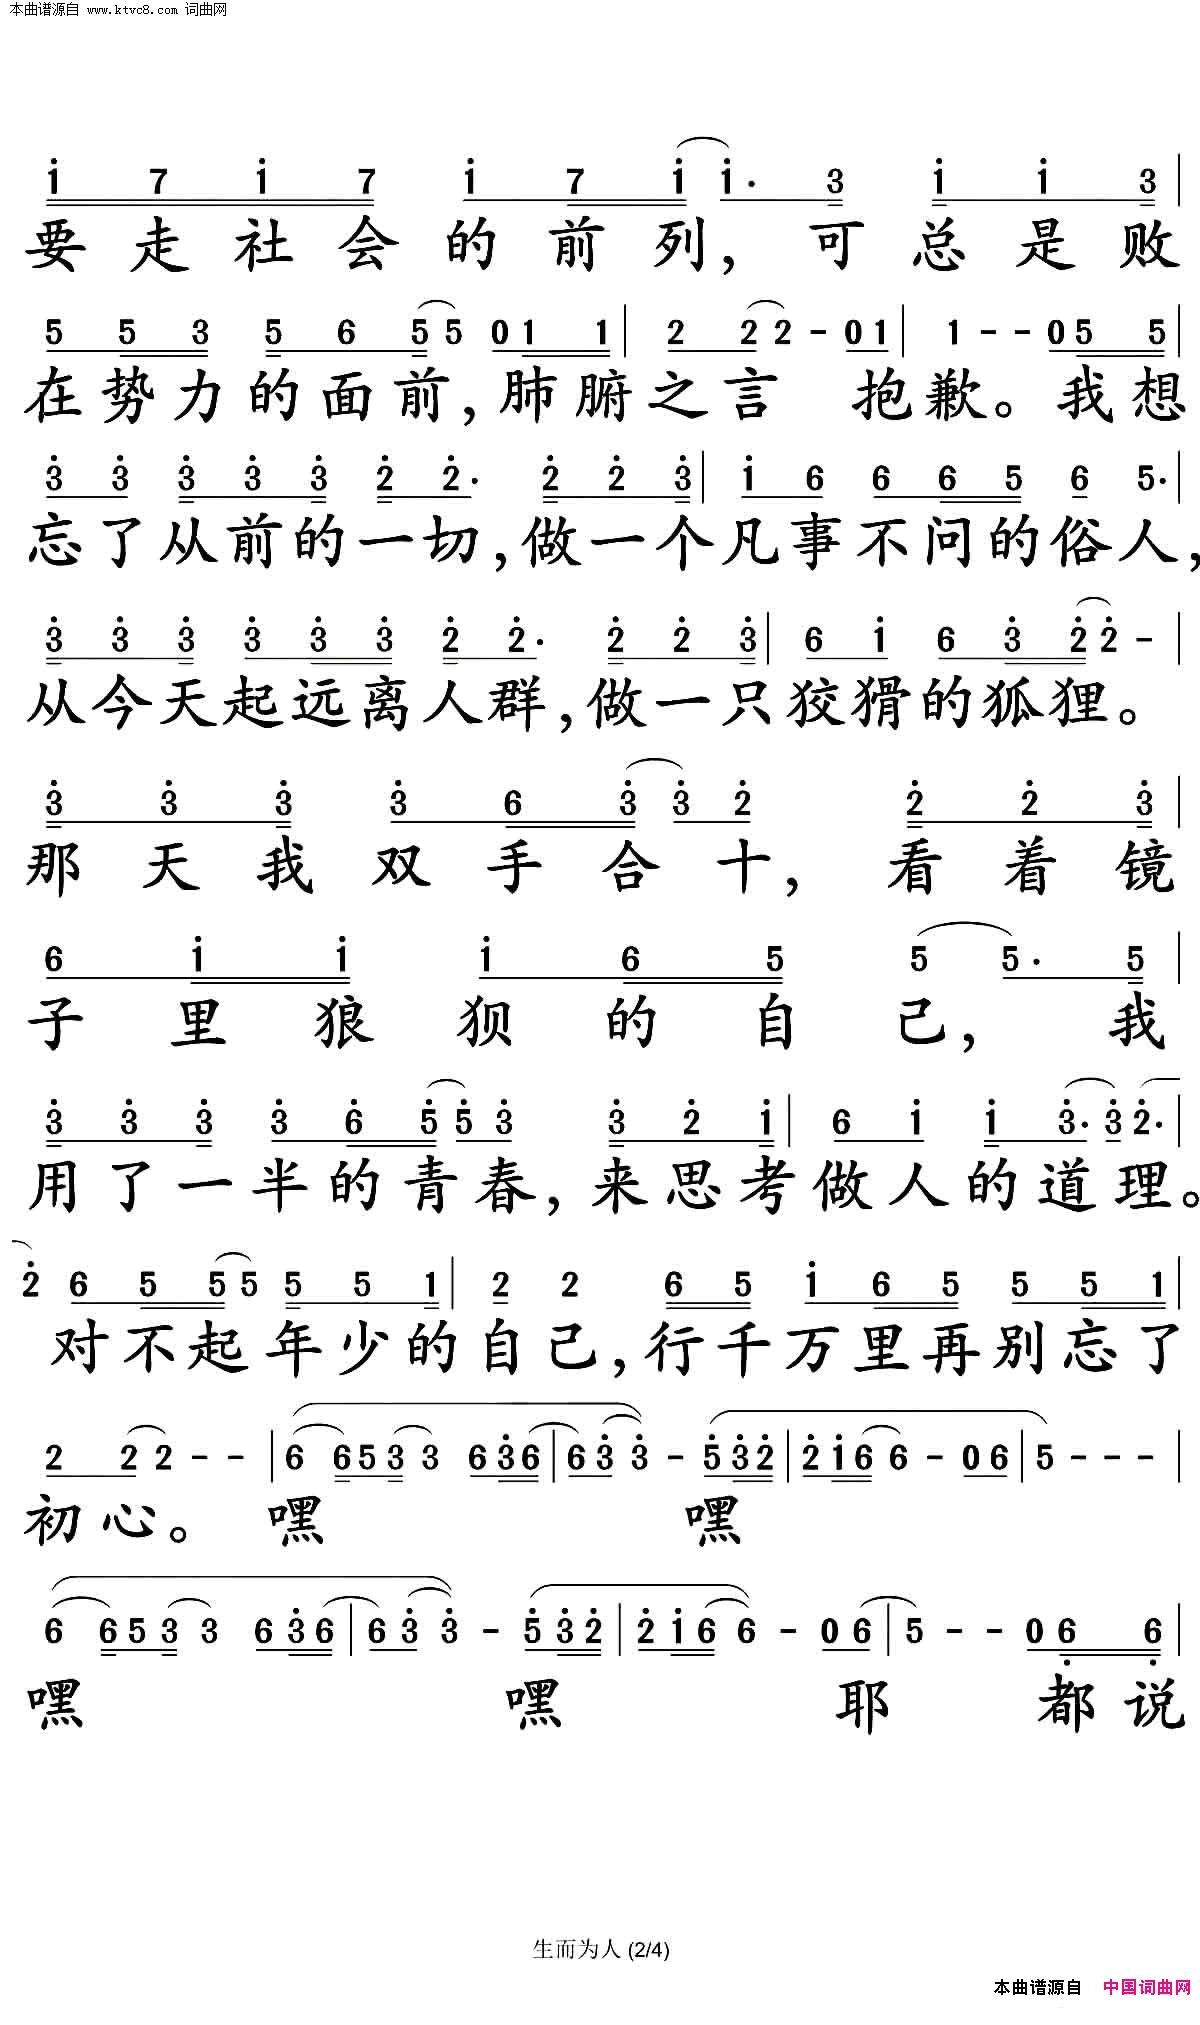 本曲谱源自 www.ktvc8.com 词曲网
1 7 1 7 1 7 1 1. 3 1 1 3 |
要走社会的前列，可总是败
5 5 3 5 6 5 5 0 1 1 | 2 2 2 - 0 1 | 1 - - 0 5 5 |
在势力的面前，肺腑之言 抱歉。我想
3 3 3 3 3 2 2. 2 2 3 | 1 6 6 6 5 6 5. |
忘了从前的一切，做一个凡事不问的俗人，
3 3 3 3 3 3 2 2. 2 2 3 | 6 1 6 3 2 2 - |
从今天起远离人群，做一只狡猾的狐狸。
3 3 3 3 6 3 3 2 2 2 3 |
那天我双手合十，看着镜
6 1 1 1 6 5 5 5. 5 |
子里狼狈的自己，我
3 3 3 3 6 5 5 3 3 2 1 | 6 1 1 3. 3 2. |
用了一半的青春，来思考做人的道理。
2 6 5 5 5 5 5 1 | 2 2 6 5 1 6 5 5 5 1 |
对不起年少的自己，行千万里再别忘了
2 2 2 - - | 6 6 5 3 3 6 3 6 | 6 3 3 - 5 3 2 | 2 1 6 6 - 0 6 | 5 - - - |
初心。嘿 嘿
6 6 5 3 3 6 3 6 | 6 3 3 - 5 3 2 | 2 1 6 6 - 0 6 | 5 - - 0 6 6 |
嘿 嘿 耶 都说
生而为人 (2/4)
本曲谱源自 中国词曲网